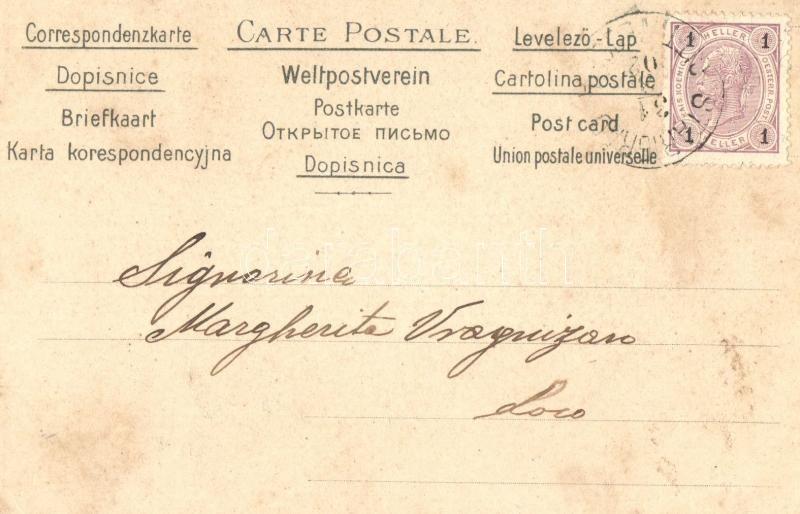 Correspondenzkarte
Dopisnice
Briefkaart
Karta korespondencyjna
CARTE POSTALE.
Weltpostverein
Postkarte
Открытое письмо
Dopisnica
Levelező-Lap
Cartolina postale
Post card
Union postale universelle
1 HELLER 1
KAIS. KOENIGL. OESTERR. POST
1 HELLER 1
darabanth
Signorina
Margherita Vragnizan
Loco